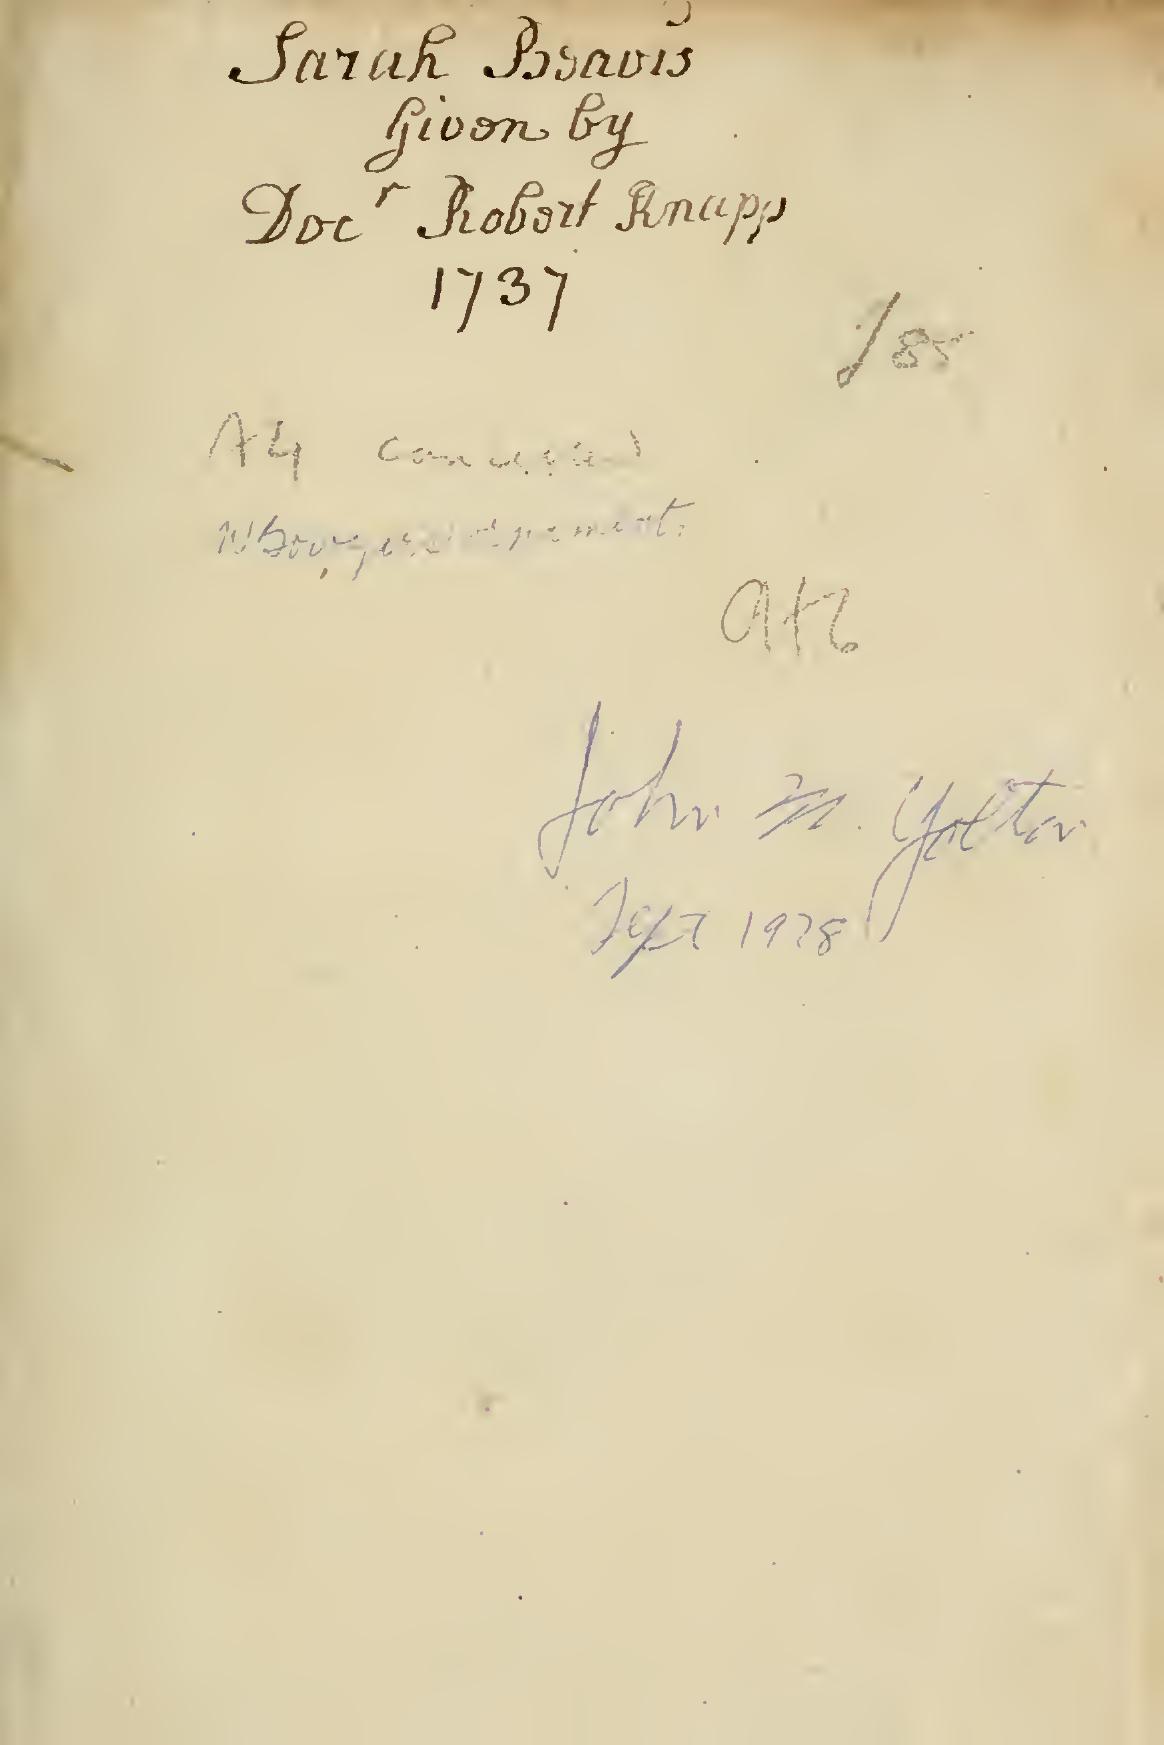 Sarah Beavis
Given by
Doc^r Robert Knapp
1737
/85
A4
John M. Yolton
Sept 1978